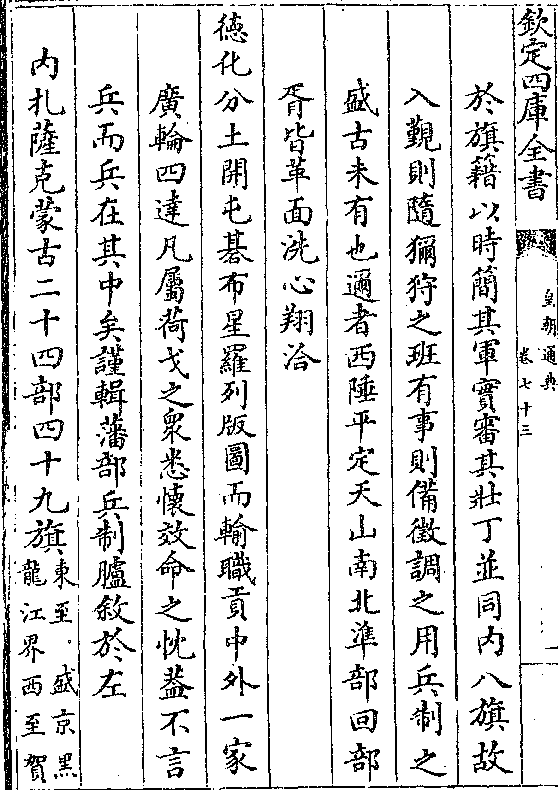 欽定四庫全書
皇朝通典
卷七十三
於旗籍以時簡其軍實審其壯丁並同内八旗故
入覲則隨獮狩之班有事則備徴調之用兵制之
盛古未有也邇者西陲平定天山南北準部回部
胥皆革面洗心翔洽
德化分土開屯碁布星羅列版圖而輸職貢中外一家
廣輪四達凡屬荷戈之衆悉懷效命之忱蓋不言
兵而兵在其中矣謹輯藩部兵制臚敘於左
内扎薩克蒙古二十四部四十九旗東至盛京黑
龍江界西至賀